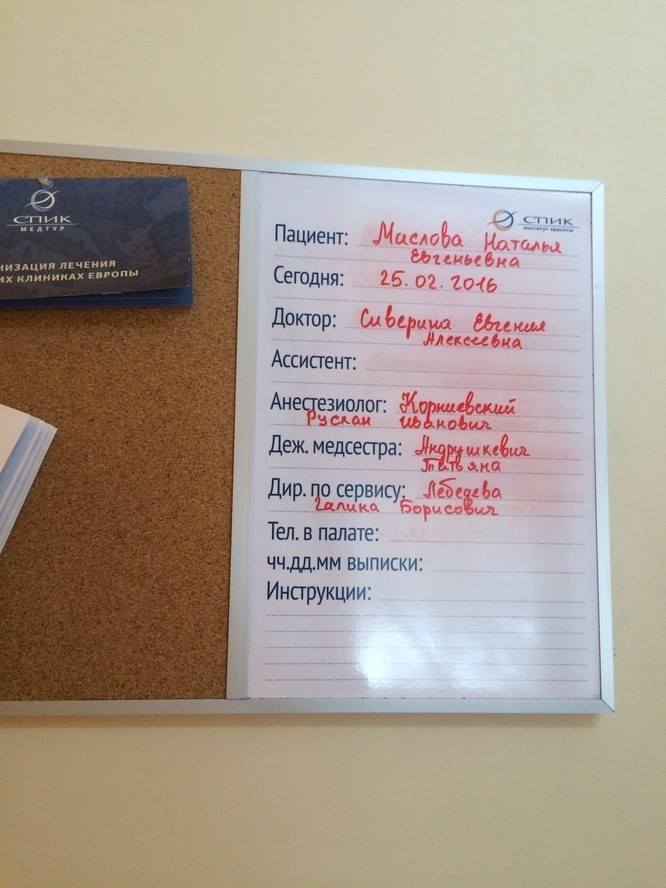 СПИК
МЕДТУР
НИЗАЦИЯ ЛЕЧЕНИЯ
ИХ КЛИНИКАХ ЕВРОПЫ
СПИК
институт красоты
Пациент: Маслова Наталья
Евгеньевна
Сегодня: 25.02.2016
Доктор: Сиверина Евгения
Алексеевна
Ассистент:
Анестезиолог: Корниевский
Руслан Иванович
Деж. медсестра: Андрушкевич
Татьяна
Дир. по сервису: Лебедева
Галина Борисович
Тел. в палате:
чч.дд.мм выписки:
Инструкции: